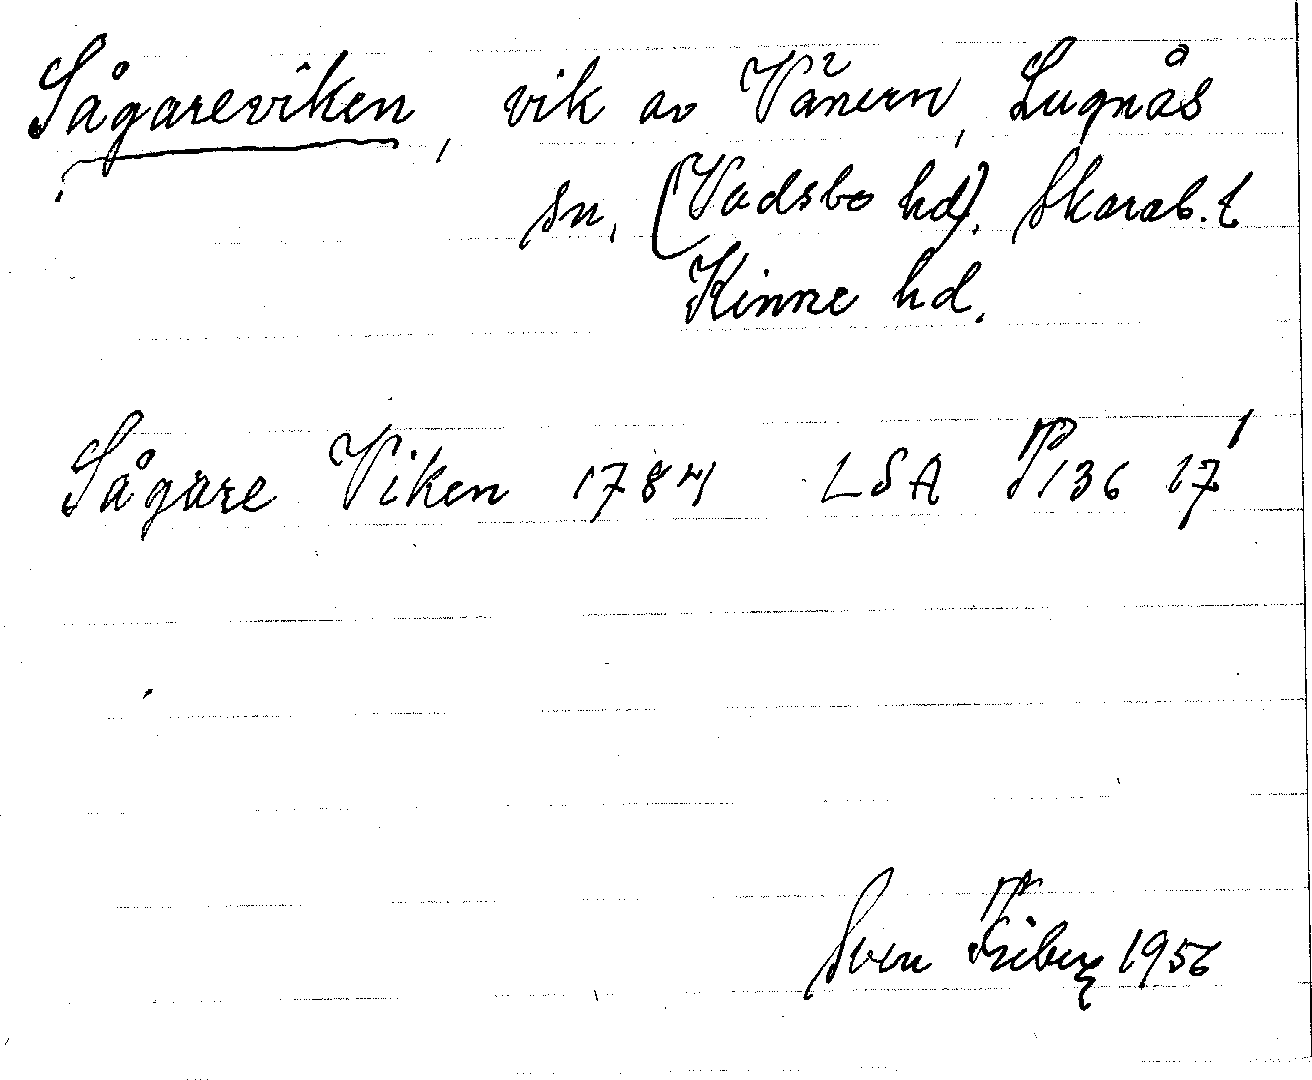 Sågareviken, vik av Vänern, Lugnås
sn. (Vadsbo hd). Skarab. l
Kinne hd.
Sågare Viken 1784 LSA P136 17¹
Sven Friberg 1956